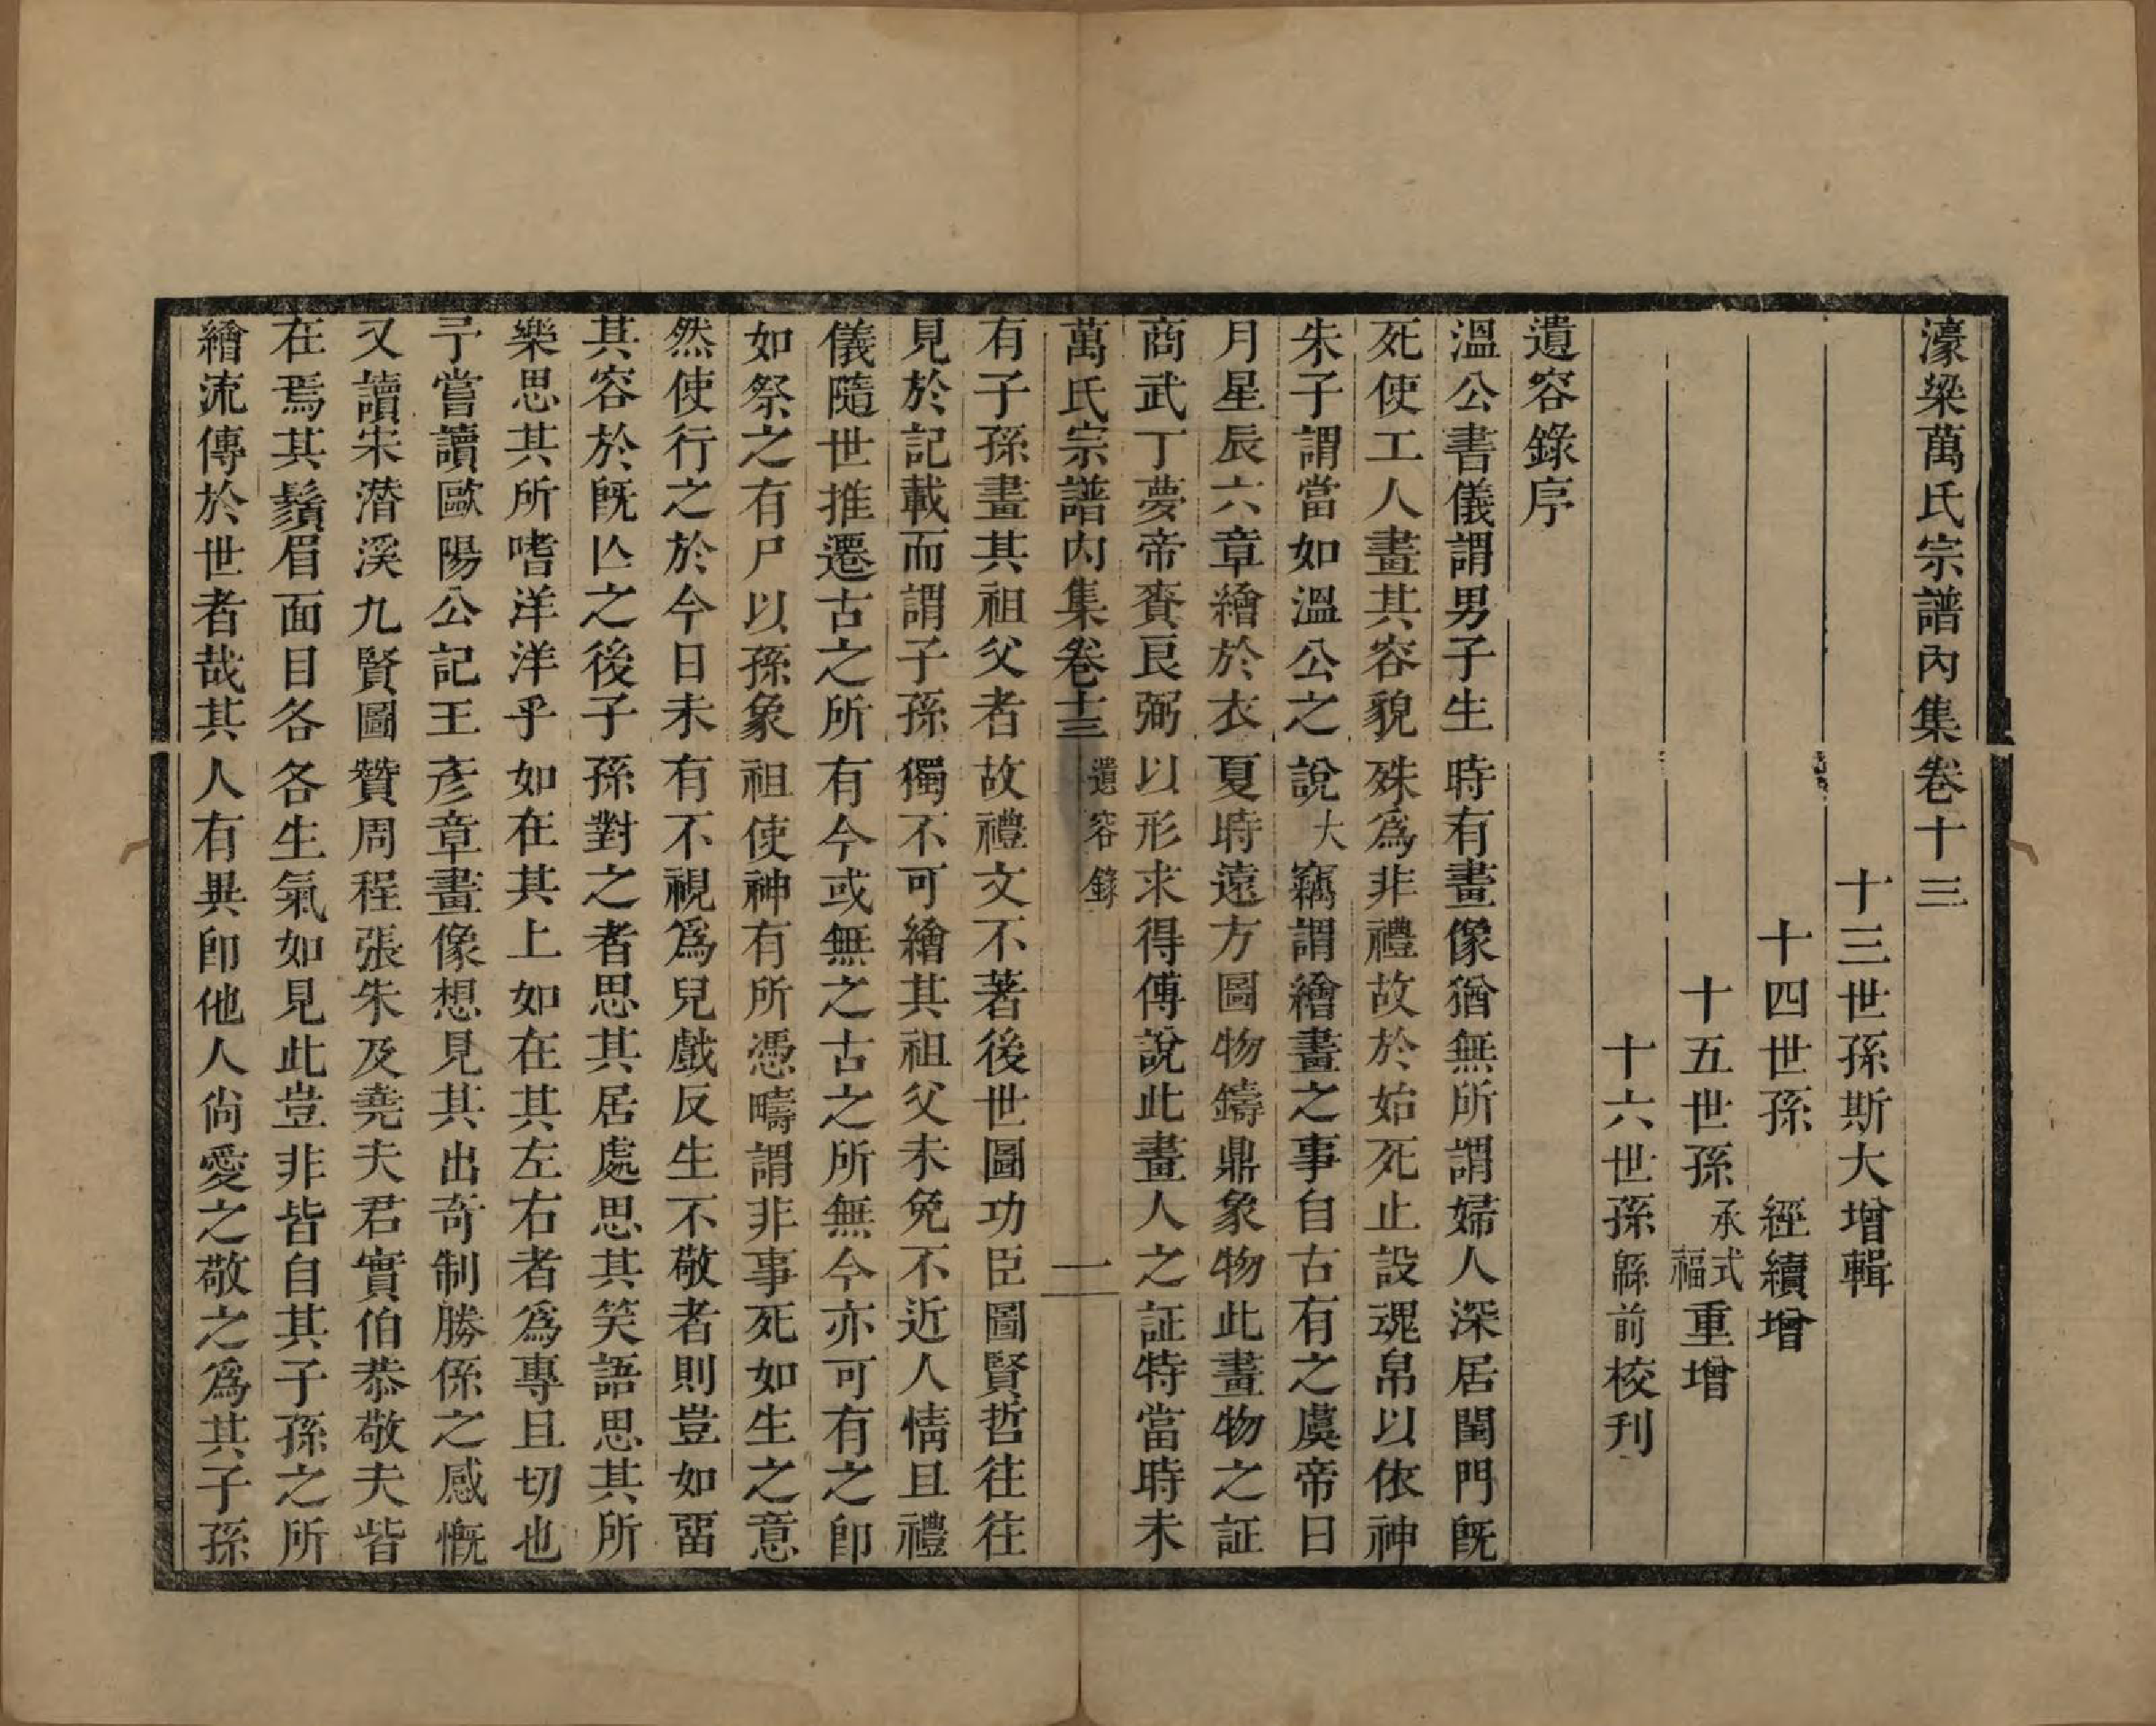 濠梁萬氏宗譜內集卷十三
十三世孫斯大增輯
十四世孫 經續增
十五世孫承式福重增
十六世孫緜前校刊
遺容錄序
溫公書儀謂男子生時有畫像猶無所謂婦人深居閨門旣
死使工人畫其容貌殊爲非禮故於始死止設魂帛以依神
朱子謂當如溫公之說大竊謂繪畫之事自古有之虞帝日
月星辰六章繪於衣夏時遠方圖物鑄鼎象物此畫物之証
商武丁夢帝賚良弼以形求得傅說此畫人之証特當時未
萬氏宗譜內集卷十三 遺容錄 一
有子孫畫其祖父者故禮文不著後世圖功臣圖賢哲往往
見於記載而謂子孫獨不可繪其祖父未免不近人情且禮
儀隨世推遷古之所有今或無之古之所無今亦可有之卽
如祭之有尸以孫象祖使神有所憑疇謂非事死如生之意
然使行之於今日未有不視爲兒戲反生不敬者則豈如留
其容於旣亾之後子孫對之者思其居處思其笑語思其所
樂思其所嗜洋洋乎如在其上如在其左右者爲專且切也
予嘗讀歐陽公記王彥章畫像想見其出奇制勝係之感慨
又讀宋潛溪九賢圖贊周程張朱及堯夫君實伯恭敬夫皆
在焉其鬚眉面目各各生氣如見此豈非皆自其子孫之所
繪流傳於世者哉其人有異卽他人尙愛之敬之爲其子孫